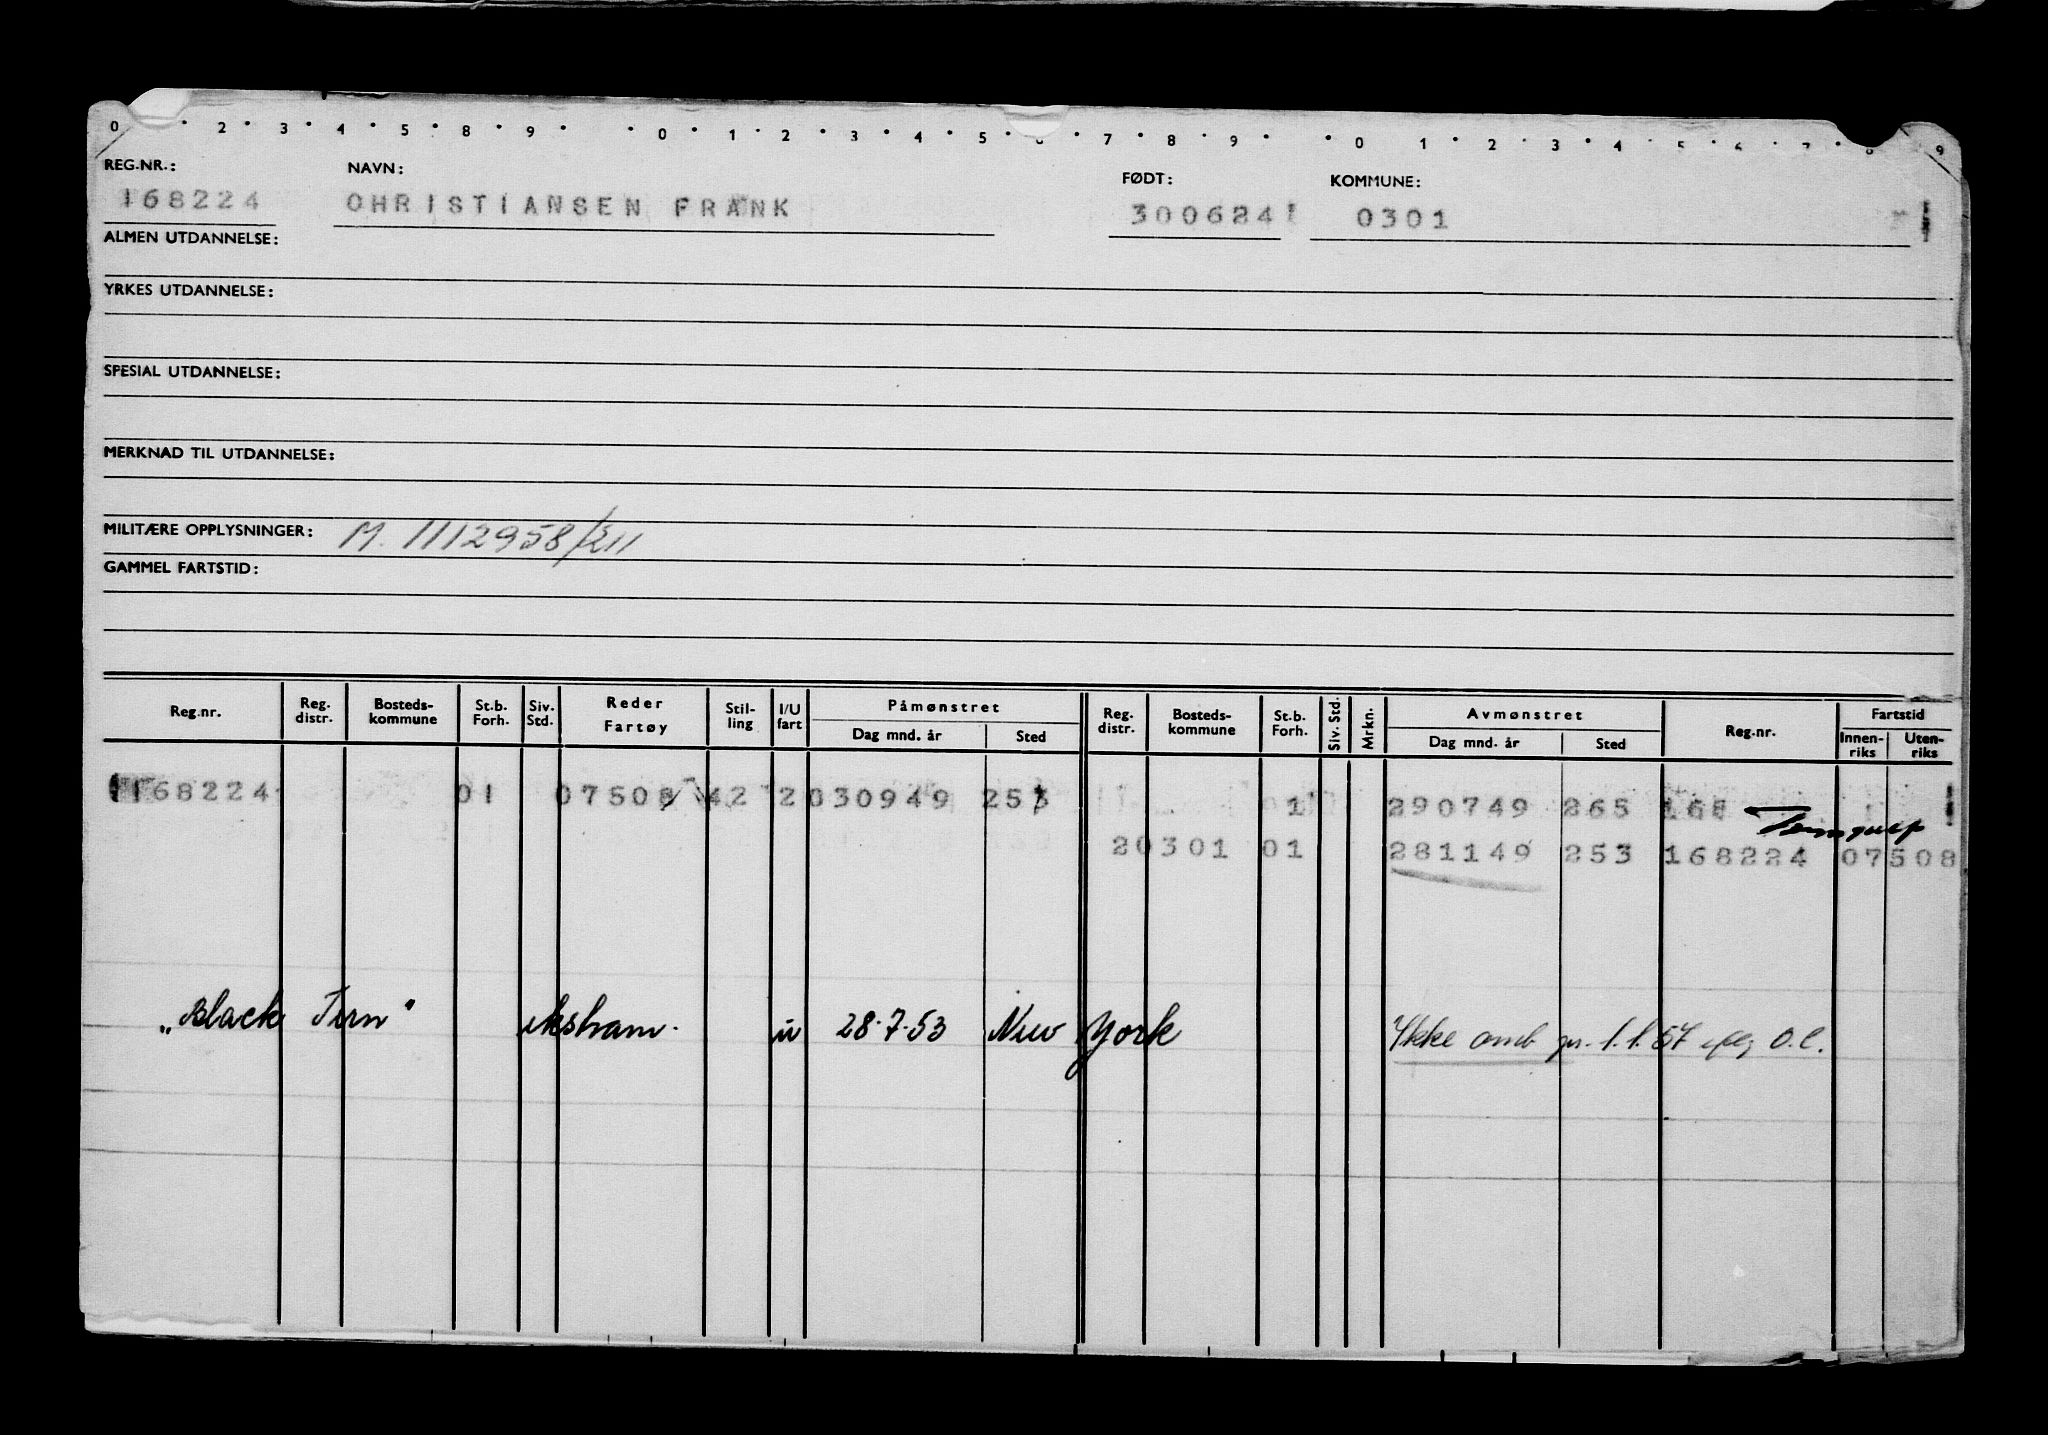 0 2 3 4 5 8 9 0 1 2 3 4 5 7 8 9 0 1 2 3 4 5 6 7 8 9
REG.NR.: NAVN: FØDT: KOMMUNE:
168224 OHRISTIANSEN FRANK 300624 0301
ALMEN UTDANNELSE:
YRKES UTDANNELSE:
SPESIAL UTDANNELSE:
MERKNAD TIL UTDANNELSE:
MILITÆRE OPPLYSNINGER: M. 1112958/211
GAMMEL FARTSTID:
Reg.nr. Reg. distr. Bosteds-kommune St.b. Forh. Siv. Std. Reder Fartøy Stil-ling I/U fart Påmønstret Dag mnd. år Sted Reg. distr. Bosteds-kommune St.b. Forh. Siv. Std. Mrkn. Avmønstret Dag mnd. år Sted Reg.nr. Fartstid Innen-riks Uten-riks
168224 01 07508 42 2 030949 253 1 290749 265 168
20301 01 281149 253 168224 07508
„Black Tern" ekstram. u 28.7.53 New York Ikke omb pr. 1.1.57 O.l.